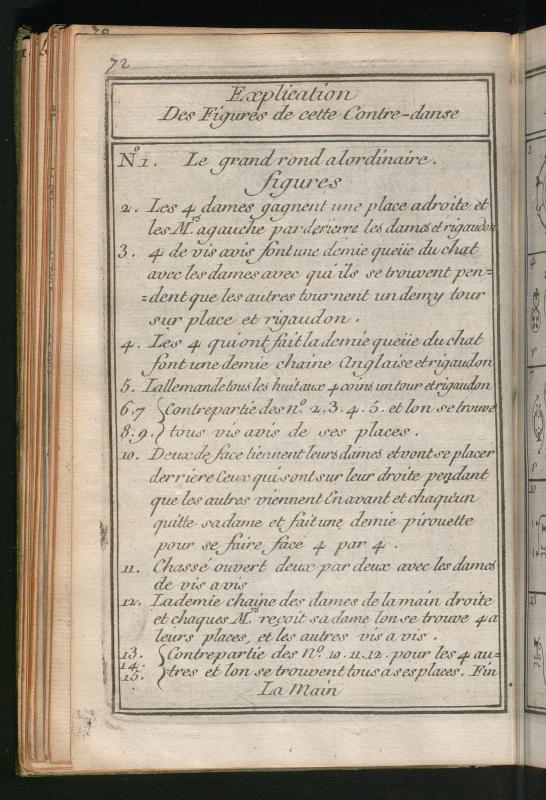 72
Explication
Des Figures de cette Contre-danse
No 1. Le grand rond alordinaire.
figures
2. Les 4 dames gagnent une place adroite et
les Mrs agauche parderierre les dames et rigaudon
3. 4 de vis avis font une demie queüe du chat
avec les dames avec qui ils se trouvent pen=
=dent que les autres tournent un demy tour
sur place et rigaudon.
4. Les 4 qui ont fait la demie queüe du chat
font une demie chaine Anglaise et rigaudon
5. Lallemande tous les huit aux 4 coins un tour et rigaudon
6.7 { Contrepartie des no. 2. 3. 4. 5. et lon se trouve
8.9. } tous vis avis de ses places.
10. Deux de face tiennent leurs dames et vont se placer
derriere Ceux qui sont sur leur droite pendant
que les autres viennent En avant et chaqu'un
quitte sa dame et fait une demie pirouette
pour se faire face 4 par 4.
11. Chassé ouvert deux par deux avec les dames
de vis avis
12. La demie chaine des dames de la main droite
et chaques Mrs reçoit sa dame lon se trouve 4 a
leurs places, et les autres vis a vis.
13. { Contrepartie des No. 10. 11. 12. pour les 4 au=
14. tres et lon se trouvent tous a ses places. Fin
15. La Main